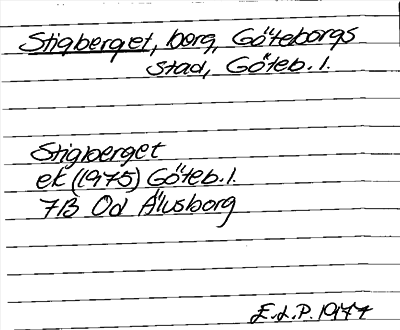 Stigberget, berg, Göteborgs
stad, Göteb. l.
Stigberget
ek (1975) Göteb. l.
7B Od Älvsborg
E.L.P. 1977